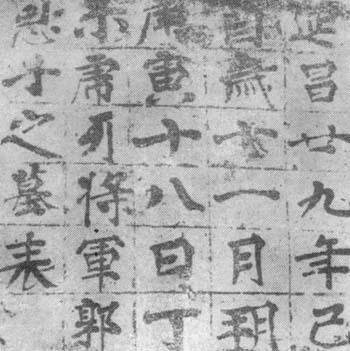 延昌廿九年己
酉歲十一月朔
庚寅十八日丁
未虎牙將軍郭
恩子之墓表